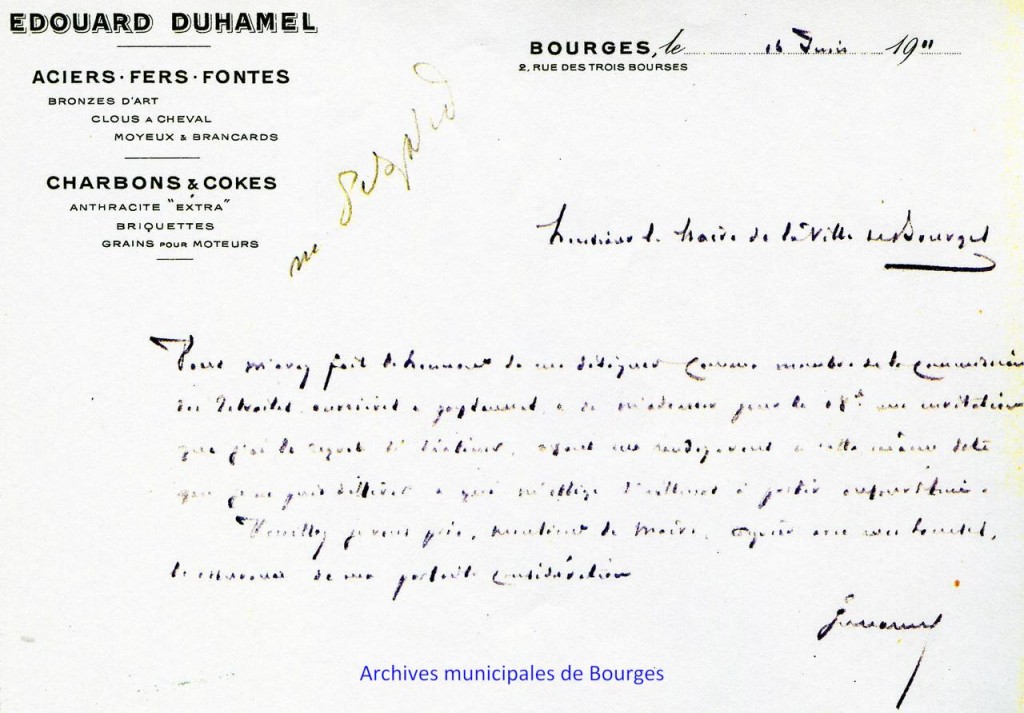 EDOUARD DUHAMEL
ACIERS · FERS · FONTES
BRONZES D'ART
CLOUS A CHEVAL
MOYEUX & BRANCARDS
CHARBONS & COKES
ANTHRACITE "EXTRA"
BRIQUETTES
GRAINS POUR MOTEURS
BOURGES, le 16 Juin 1911
2, RUE DES TROIS BOURSES
Monsieur le Maire de la Ville de Bourges
Vous m'avez fait l'honneur de me désigner comme membre de la Commission
des Retraites ouvrières & paysannes, & de m'adresser pour le 18 une invitation
que j'ai le regret de décliner, ayant un rendez-vous à cette même date
que je ne puis différer & qui m'oblige d'ailleurs à partir aujourd'hui.
Veuillez je vous prie, Monsieur le Maire, agréer avec mes
l'assurance de ma parfaite considération
Archives municipales de Bourges